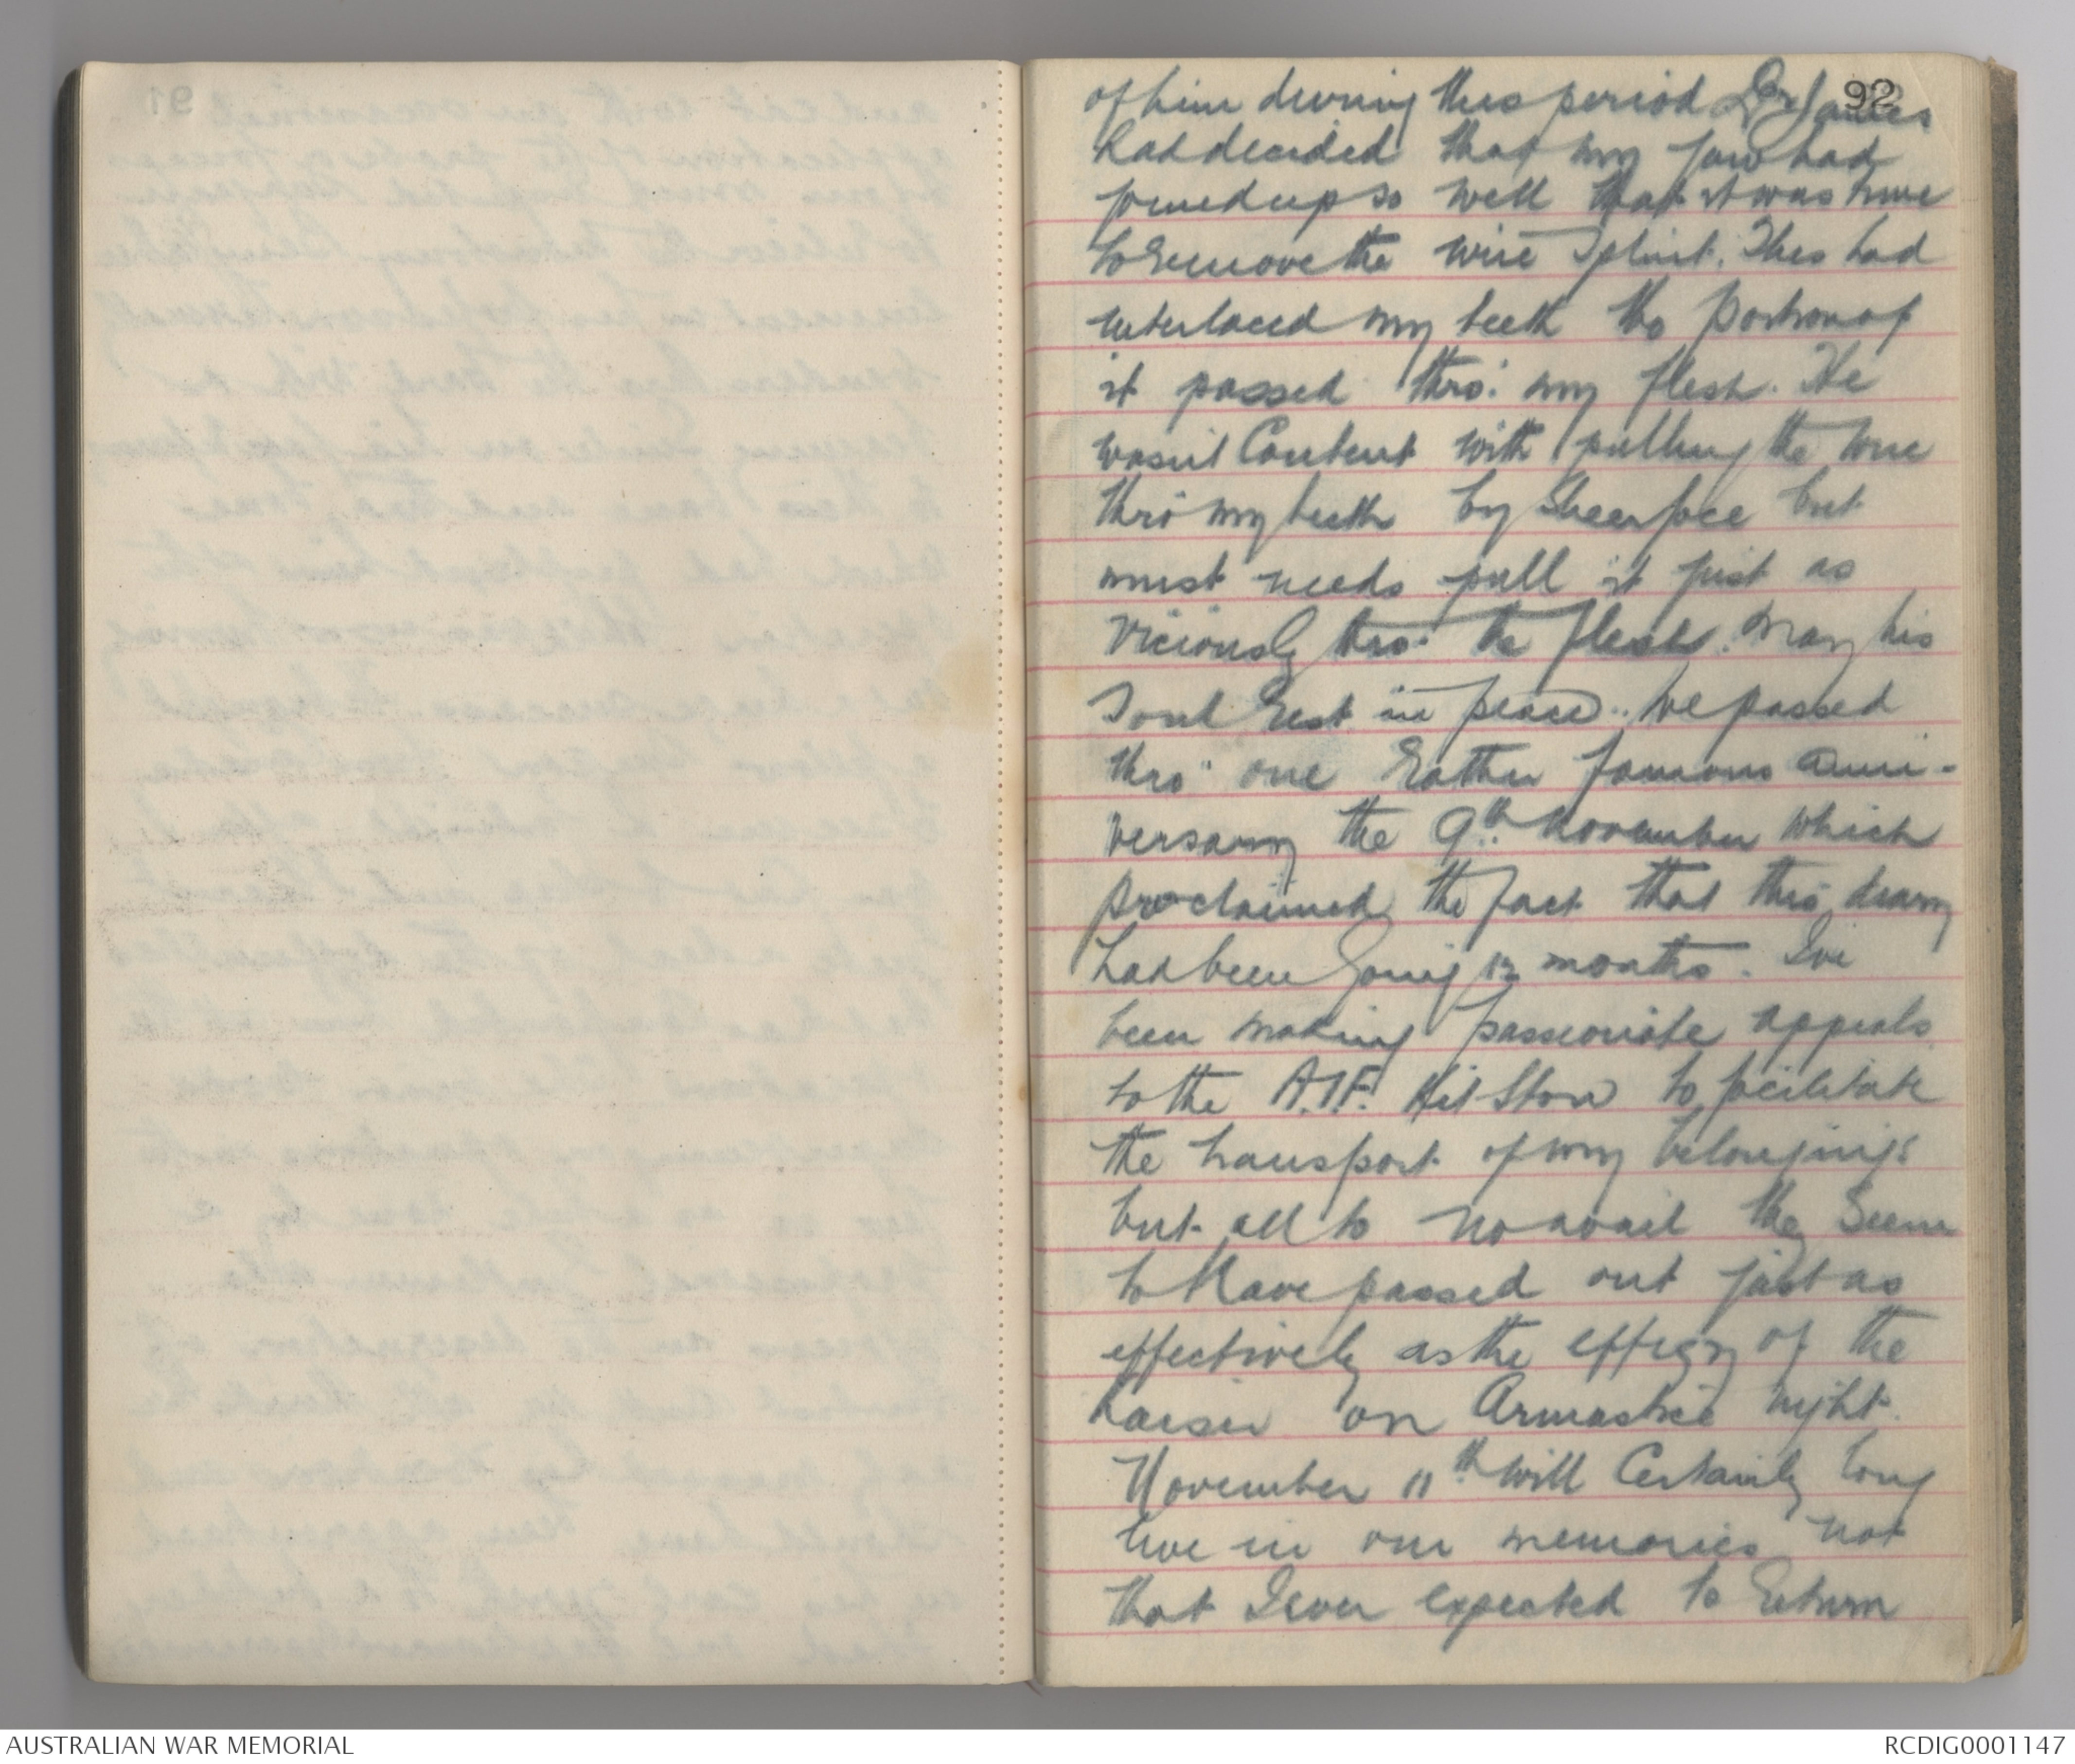 92
of him during this period Dr James
had decided that my jaw had
joined up so well that it was time
to remove the wire splint. This had
interlaced my teeth tho portion of
it passed thro' my flesh. He
wasn't content with pulling the wire
thro my teeth by sheer force but
must needs pull it just as
viciously thro' the flesh. May his
soul rest in peace. We passed
thro' one rather famous anni-
versary the 9th November which
proclaimed the fact that this diary
had been going 12 months. I've
been making passionate appeals
to the A.I.F. Kit Store to facilitate
the transport of my belongings
but all to no avail they seem
to have passed out just as
effectively as the effigy of the
Kaiser on Armastice night.
November 11th will certainly long
live in our memories not
that I ever expected to return
AUSTRALIAN WAR MEMORIAL
RCDIG0001147